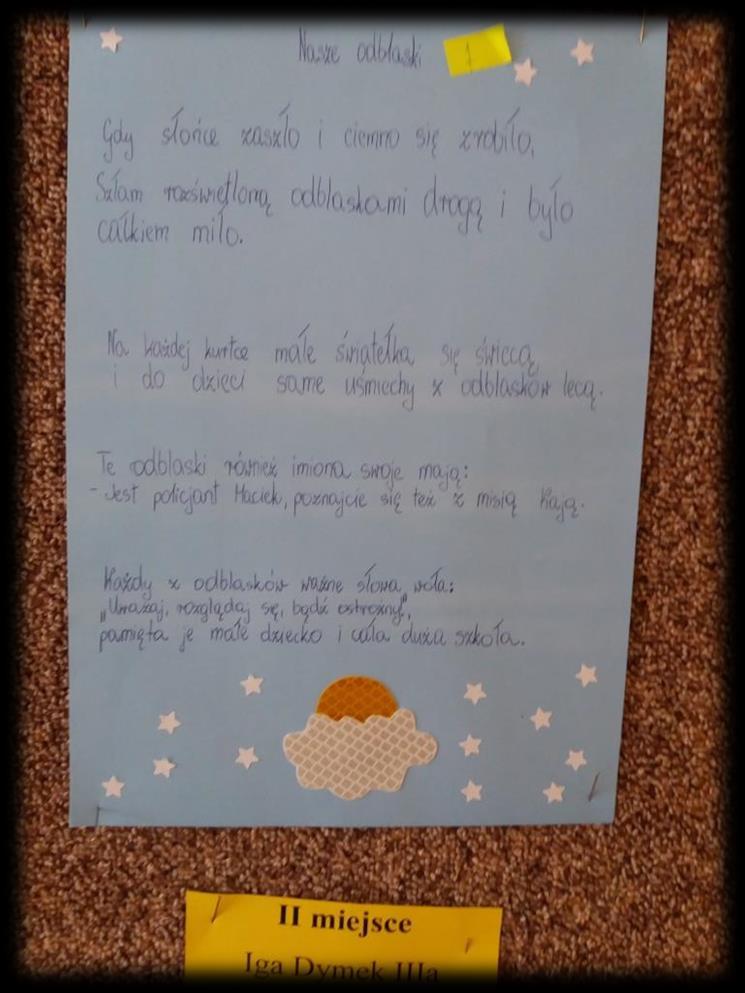 Nasze odblaski 1
Gdy słońce zaszło i ciemno się zrobiło,
Szłam rozświetloną odblaskami drogą i było
całkiem miło.
Na każdej kurtce małe światełka się świecą
i do dzieci same uśmiechy z odblasków lecą.
Te odblaski również imiona swoje mają:
- Jest policjant Maciek, poznajcie się też z misią Kają.
Każdy z odblasków ważne słowa woła:
„Uważaj, rozglądaj się, bądź ostrożny",
pamięta je małe dziecko i cała duża szkoła.
II miejsce
Iga Dymek IIIa